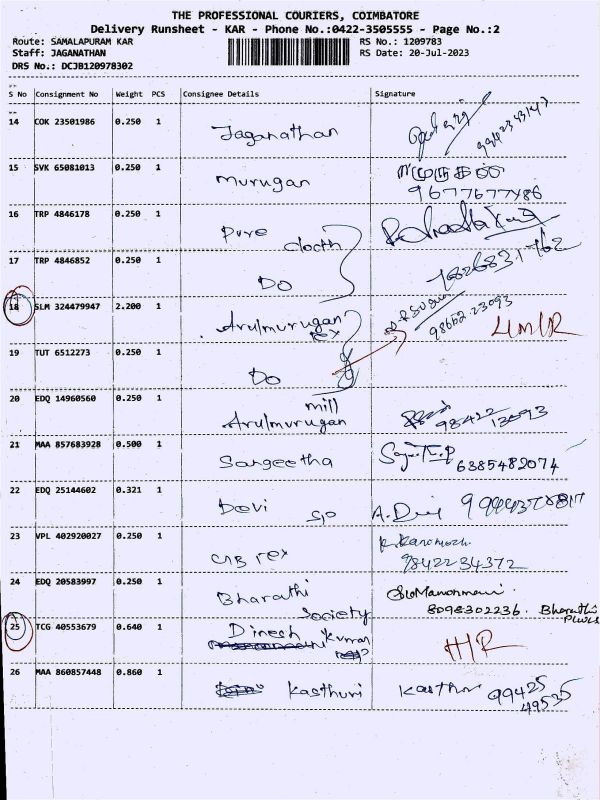 THE PROFESSIONAL COURIERS, COIMBATORE
Delivery Runsheet - KAR - Phone No.:0422-3505555 - Page No.:2
Route: SAMALAPURAM KAR
RS No.: 1209783
Staff: JAGANATHAN
RS Date: 20-Jul-2023
DRS No.: DCJB120978302
S No Consignment No Weight PCS Consignee Details Signature
14 COK 23501986 0.250 1 Jaganathan
15 SVK 65081013 0.250 1 Murugan
9677677486
16 TRP 4846178 0.250 1 Pure cloth
17 TRP 4846852 0.250 1 Do
18 SLM 324479947 2.200 1 Arulmurugan Tex
98652 23093
19 TUT 6512273 0.250 1 Do
20 EDQ 14960560 0.250 1 Arulmurugan mill
98422 13093
21 MAA 857683928 0.500 1 Sangeetha
6385482074
22 EDQ 25144602 0.321 1 Devi S/o A. Devi
23 VPL 402920027 0.250 1 CNB Tex
9842234372
24 EDQ 20583997 0.250 1 Bharathi Society
8098302236. Bharathi
25 TCG 40553679 0.640 1 Dinesh Kumar
26 MAA 860857448 0.860 1 Kasthuri Kasthuri 99425
49535